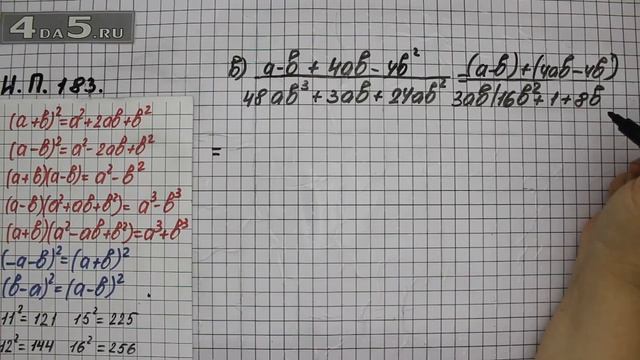 4DA5.RU
И.П. 183.
(a+b)²=a²+2ab+b²
(a-b)²=a²-2ab+b²
(a+b)(a-b)=a²-b²
(a-b)(a²+ab+b²)=a³-b³
(a+b)(a²-ab+b²)=a³+b³
(-a-b)²=(a+b)²
(b-a)²=(a-b)².
11²=121 15²=225
12²=144 16²=256
в) a-b+4ab-4b² = (a-b)+(4ab-4b)
48ab³+3ab+24ab² 3ab(16b²+1+8b
=